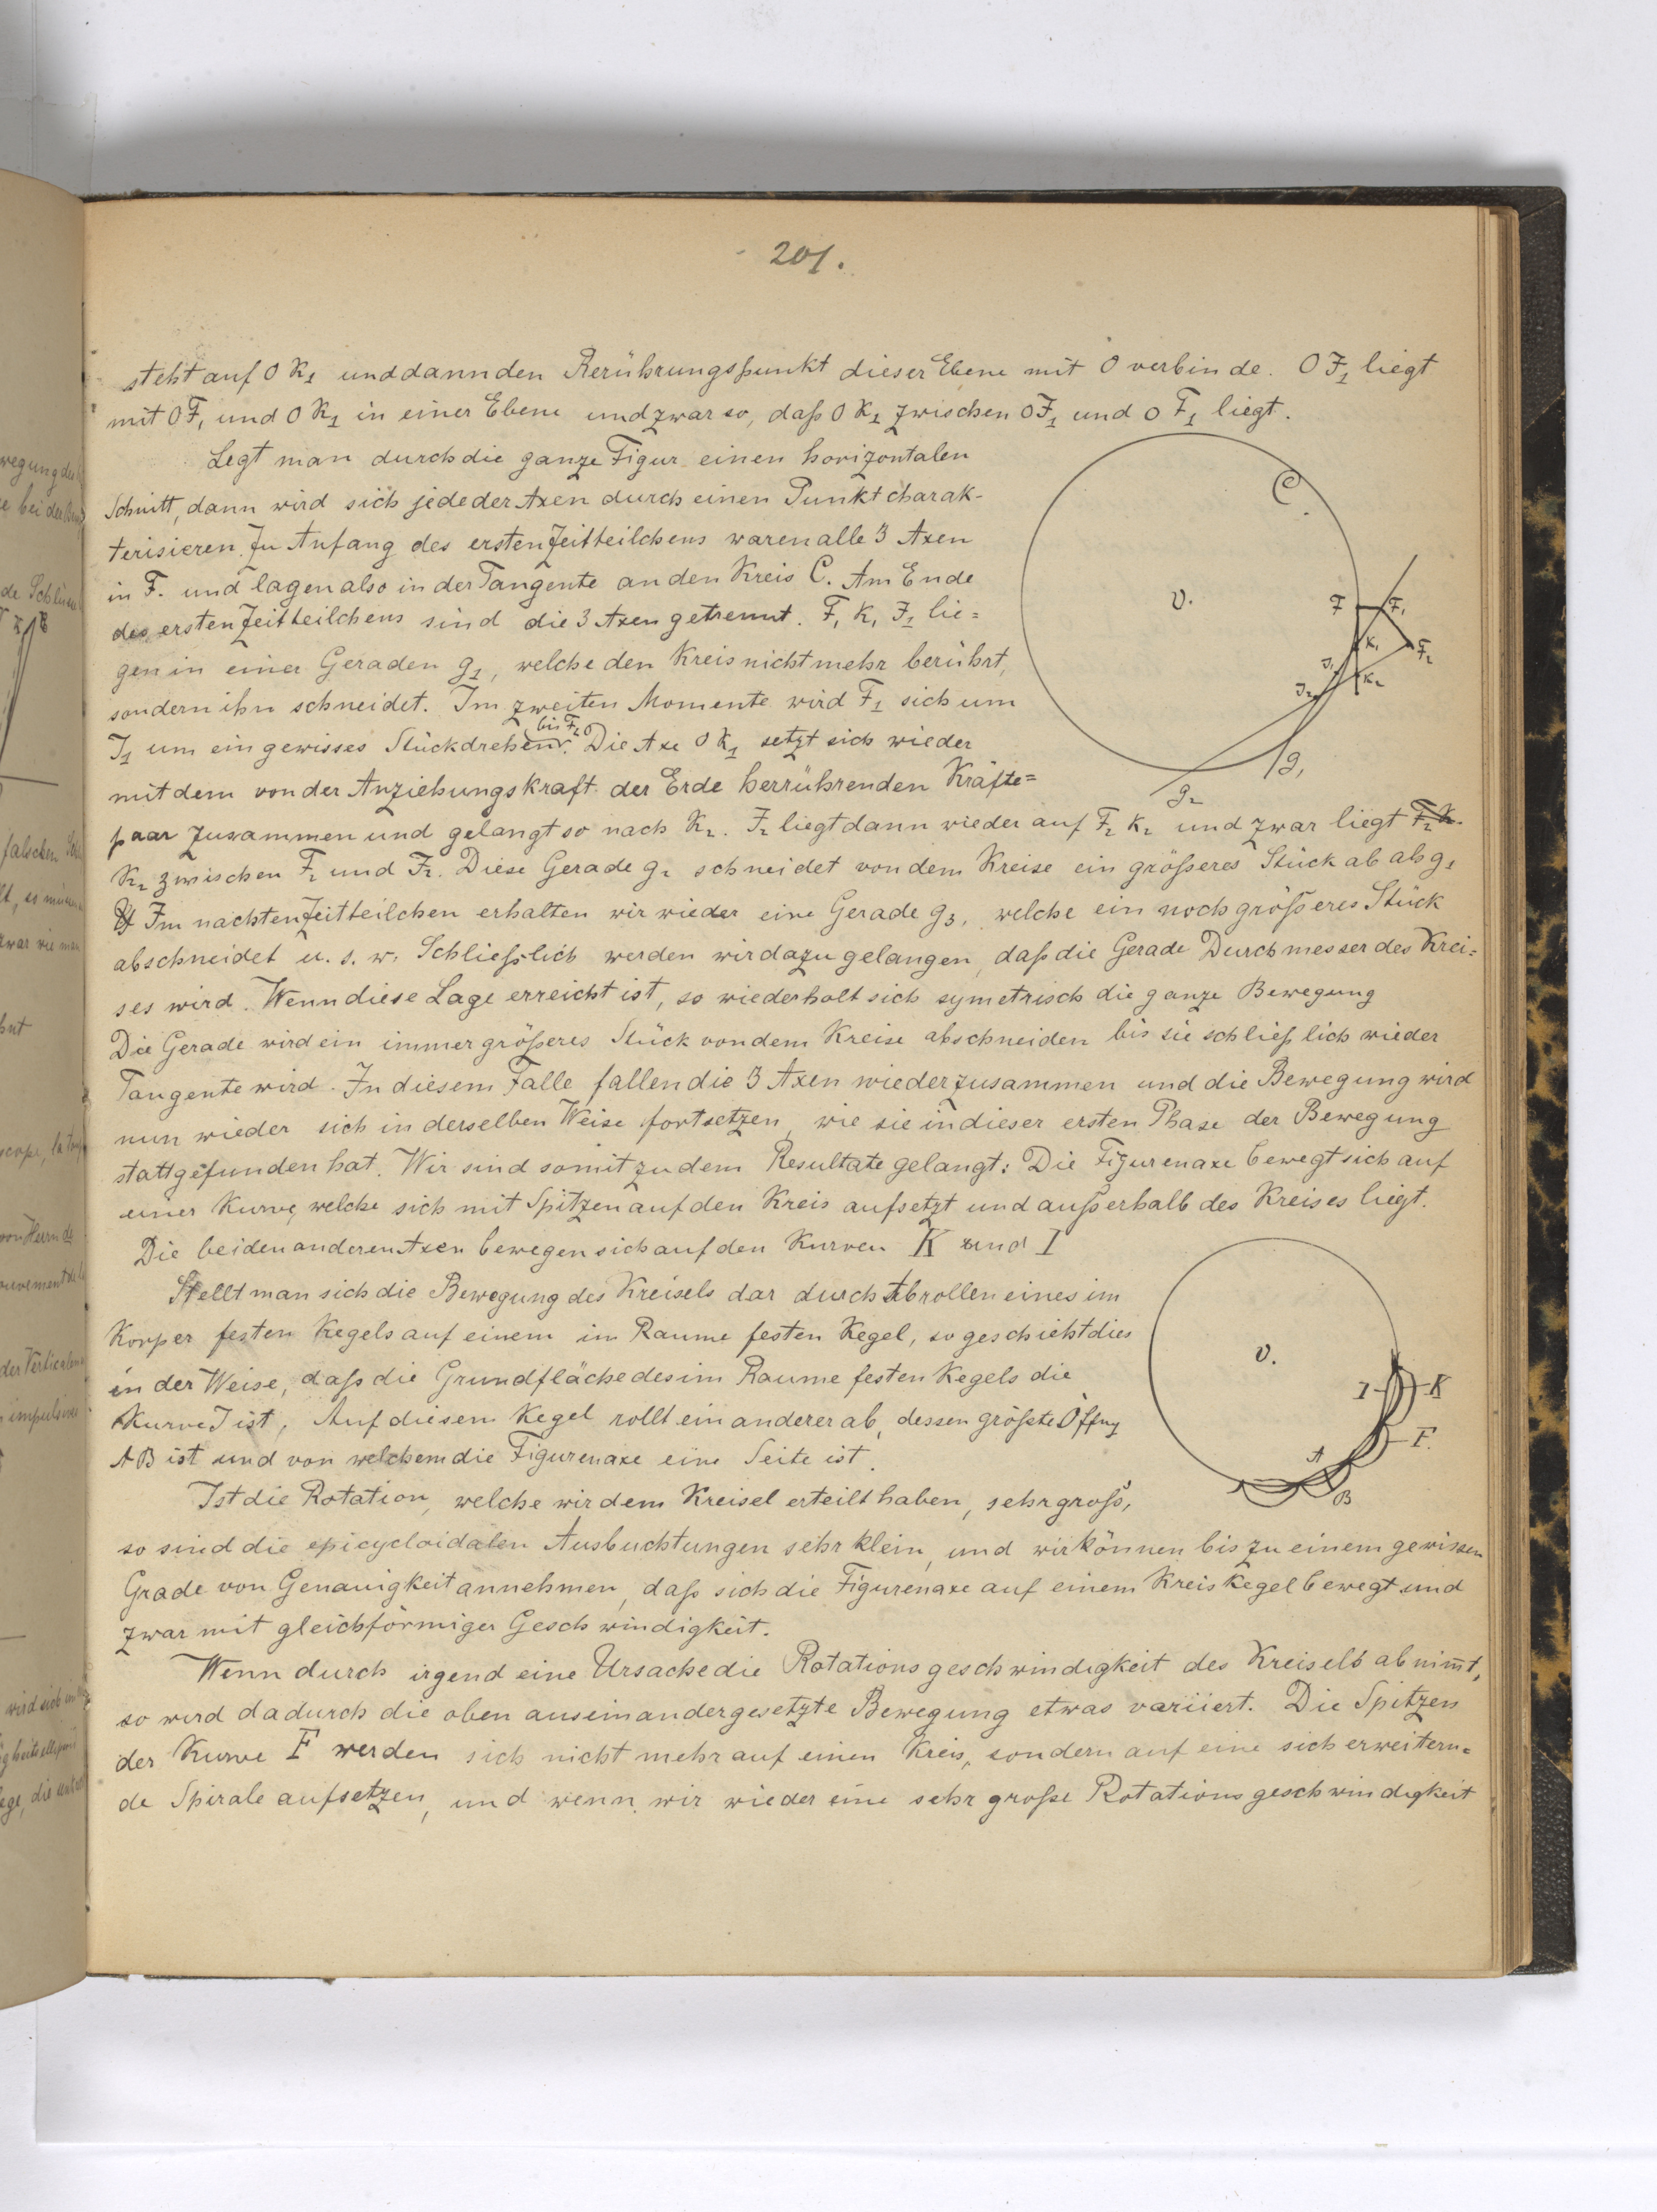 201.
steht auf O K1 und dann den Berührungspunkt dieser Ebene mit O verbinde. O J1 liegt
mit O F1 und O K1 in einer Ebene und zwar so, daß O K1 zwischen O J1 und O F1 liegt.
Legt man durch die ganze Figur einen horizontalen
Schnitt, dann wird sich jede der Axen durch einen Punkt charak-
terisieren. Zu Anfang des ersten Zeitteilchens waren alle 3 Axen
in F. und lagen also in der Tangente an den Kreis C. Am Ende
des ersten Zeitteilchens sind die 3 Axen getrennt. F1 K1 J1 lie=
gen in einer Geraden g1, welche den Kreis nicht mehr berührt,
sondern ihn schneidet. Im zweiten Momente wird F1 sich um
bis F2
J1 um ein gewisses Stück drehen. Die Axe O K1 setzt sich wieder
mit dem von der Anziehungskraft der Erde herrührenden Kräfte=
paar zusammen und gelangt so nach K2. J2 liegt dann wieder auf F2 K2 und zwar liegt
K2 zwischen F2 und J2. Diese Gerade g2 schneidet von dem Kreise ein größeres Stück ab als g1
Im nächsten Zeitteilchen erhalten wir wieder eine Gerade g3, welche ein noch größeres Stück
abschneidet u. s. w. Schließlich werden wir dazu gelangen, daß die Gerade Durchmesser des Krei=
ses wird. Wenn diese Lage erreicht ist, so wiederholt sich symetrisch die ganze Bewegung
Die Gerade wird ein immer größeres Stück von dem Kreise abschneiden bis sie schließlich wieder
Tangente wird. In diesem Falle fallen die 3 Axen wieder zusammen und die Bewegung wird
nun wieder sich in derselben Weise fortsetzen, wie sie in dieser ersten Phase der Bewegung
stattgefunden hat. Wir sind somit zu dem Resultate gelangt: Die Figurenaxe bewegt sich auf
einer Kurve, welche sich mit Spitzen auf den Kreis aufsetzt und außerhalb des Kreises liegt.
Die beiden anderen Axen bewegen sich auf den Kurven K und I
Stellt man sich die Bewegung des Kreisels dar durch Abrollen eines im
Körper festen Kegels auf einem im Raume festen Kegel, so geschieht dies
in der Weise, daß die Grundfläche des im Raume festen Kegels die
Kurve J ist, Auf diesem Kegel rollt ein anderer ab, dessen größte Öffng
AB ist und von welchem die Figurenaxe eine Seite ist.
Ist die Rotation, welche wir dem Kreisel erteilt haben, sehr groß,
so sind die epicycloidalen Ausbuchtungen sehr klein, und wir können bis zu einem gewissen
Grade von Genauigkeit annehmen, daß sich die Figurenaxe auf einem Kreiskegel bewegt und
zwar mit gleichförmiger Geschwindigkeit.
Wenn durch irgend eine Ursache die Rotationsgeschwindigkeit des Kreisels abnimt,
so wird dadurch die oben auseinandergesetzte Bewegung etwas variiert. Die Spitzen
der Kurve F werden sich nicht mehr auf einen Kreis, sondern auf eine sich erweitern=
de Spirale aufsetzen, und wenn wir wieder eine sehr große Rotationsgeschwindigkeit
C
O.
F
F1
K1
F2
J1
K2
J2
g1
g2
O.
I
K
F.
A
B